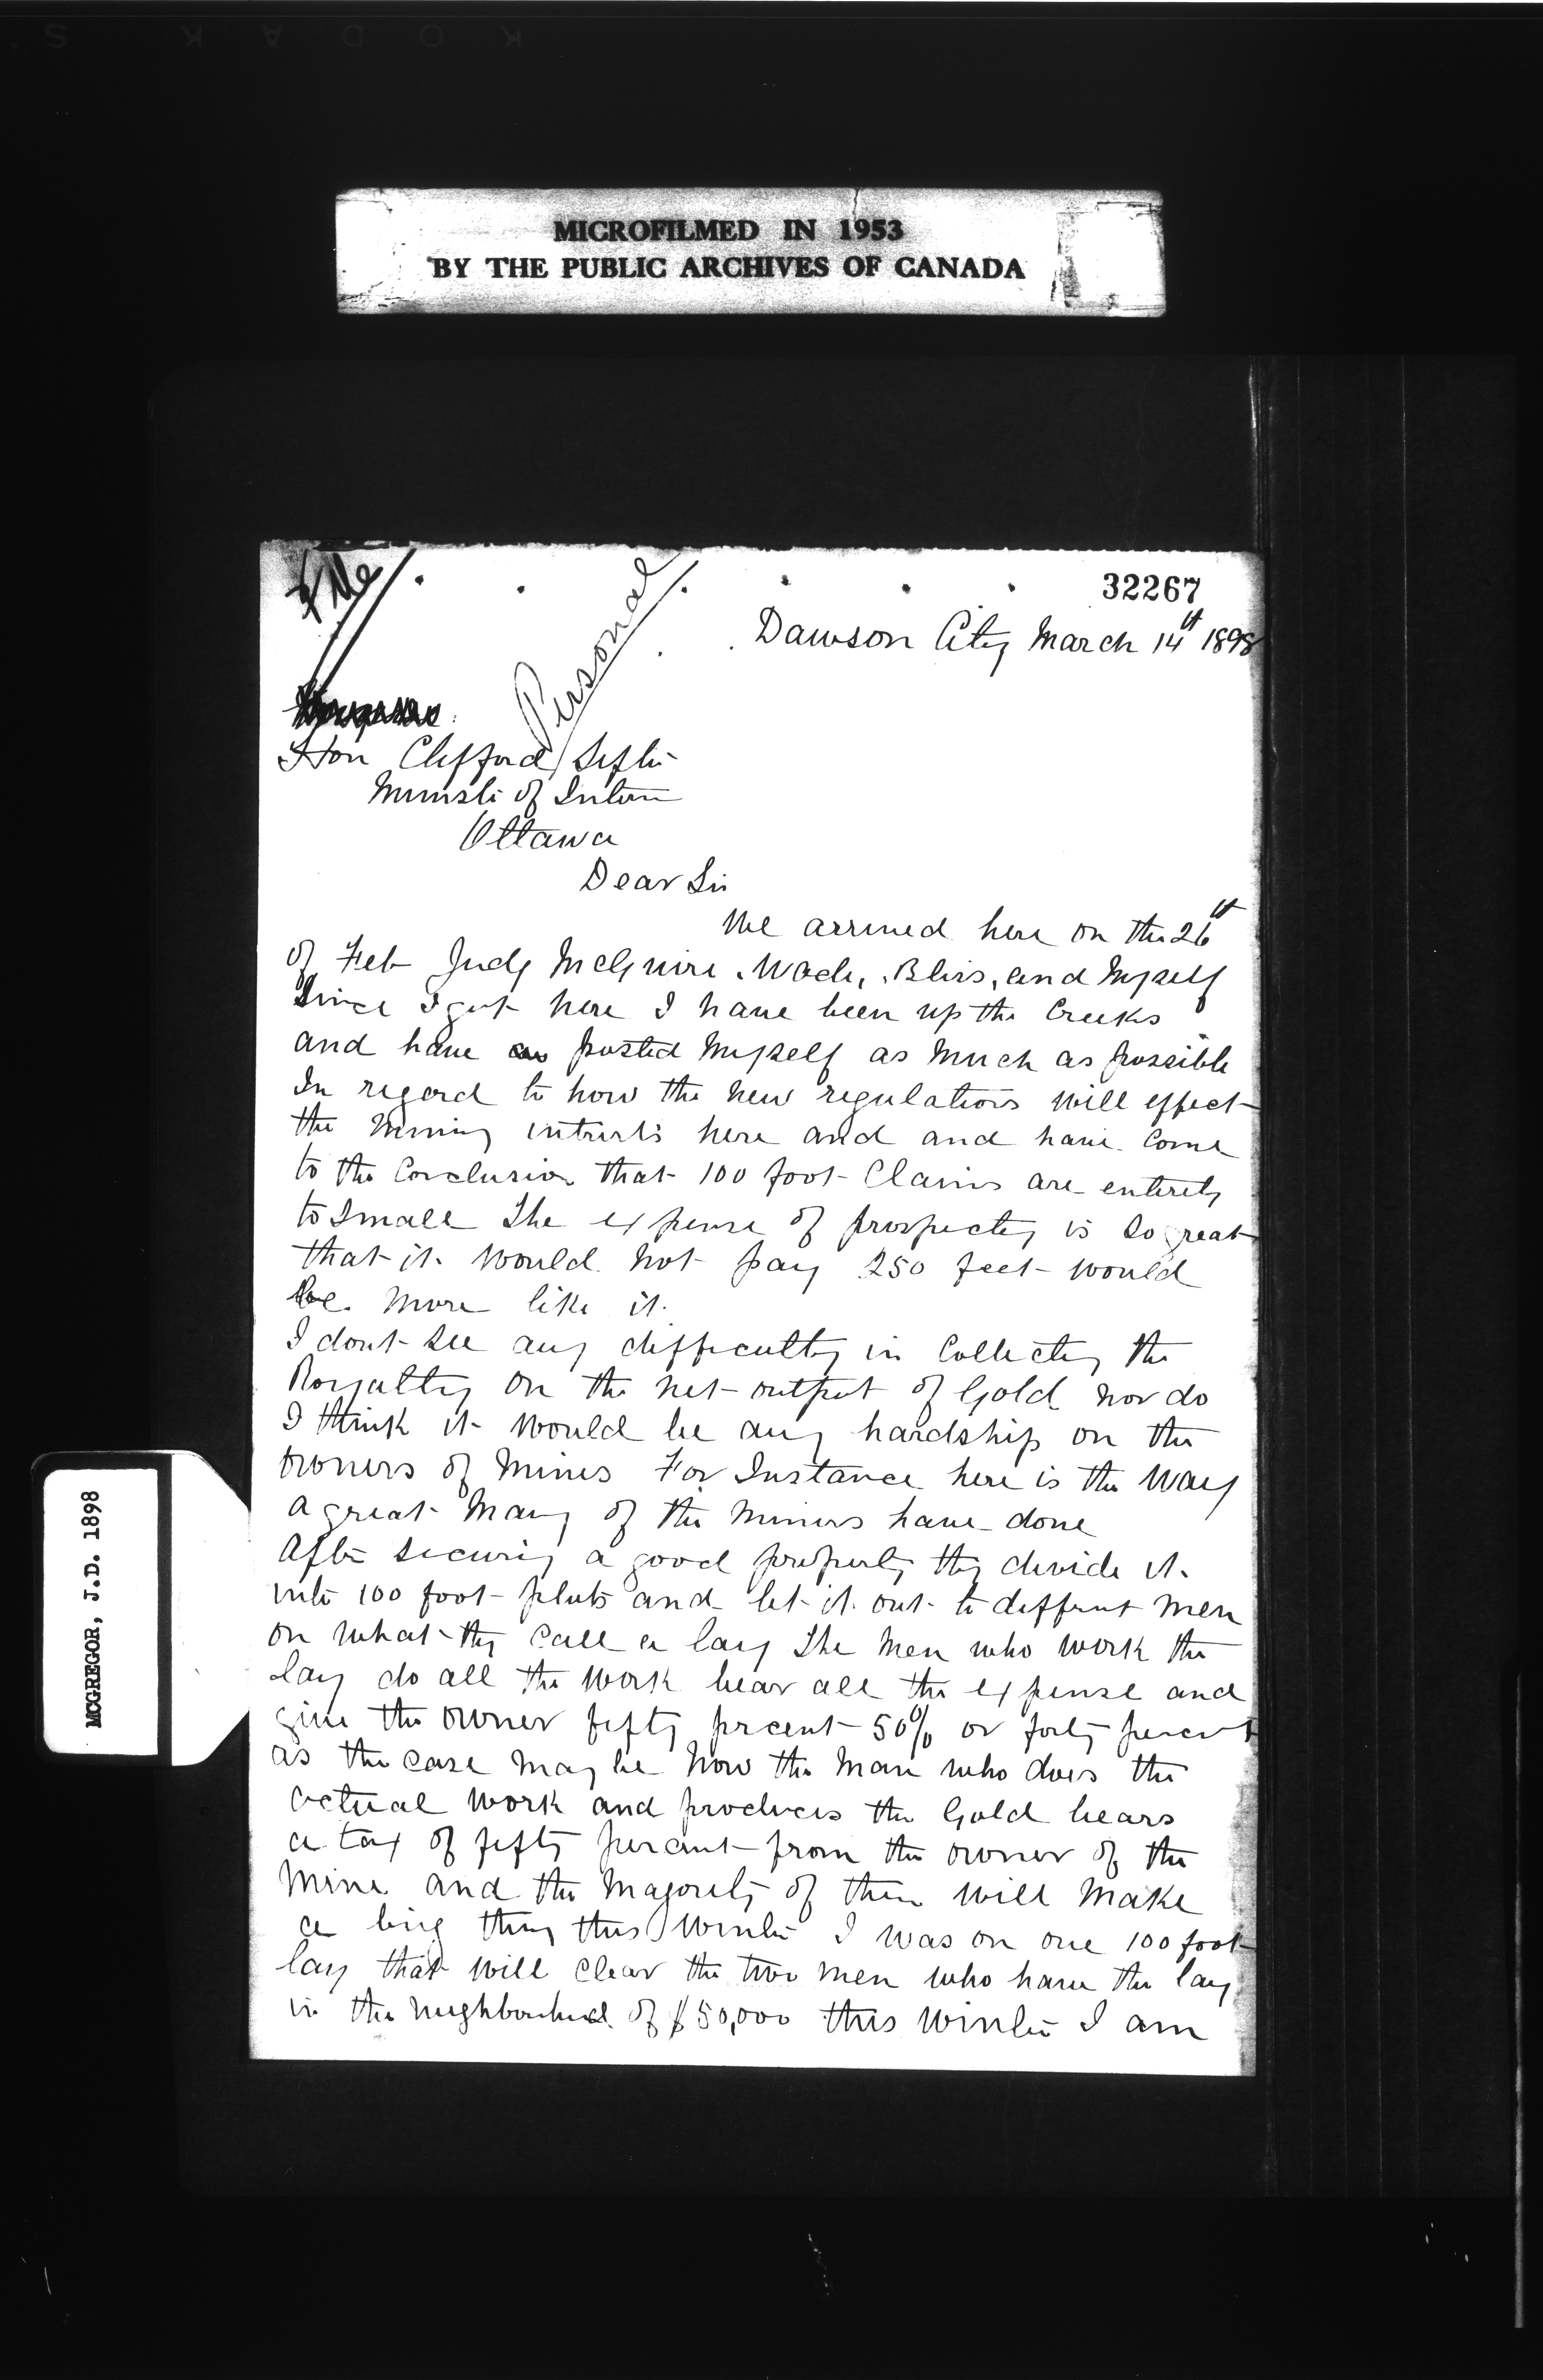 KODAK S
MICROFILMED IN 1953
BY THE PUBLIC ARCHIVES OF CANADA
MCGREGOR, J.D. 1898
File
Personal
32267
Dawson City March 14th 1898
Hon Clifford Sifton
Minister of Interior
Ottawa
Dear Sir
We arrived here on the 26th
of Feb Judg McGuire, Wade, Bliss, and Myself
Since I got here I have been up the Creeks
and have posted Myself as Much as possible
In regard to how the New regulations will effect
the Mining intrests here and and have Come
to the Conclusion that 100 foot Claims are entirely
to Small The expense of prospecting is So great
that it would not pay 250 feet would
be More like it.
I dont See any difficulty in Collecting the
Royalty on the net output of Gold nor do
I think it would be any hardship on the
owners of Mines For Instance here is the Way
a great Many of the Miners have done
After Securing a good property they divide it
into 100 foot plots and let it out to different Men
on what they Call a lay The Men who work the
lay do all the work bear all the expense and
give the owner fifty prcent 50% or forty percent
as the case may be Now the Man who does the
actual work and produces the Gold bears
a tax of fifty percent from the owner of the
Mine and the Majority of them will Make
a big thing this Winter I was on one 100 foot
lay that will Clear the two Men who have the lay
in the Neighbourhood of $50,000 this Winter I am